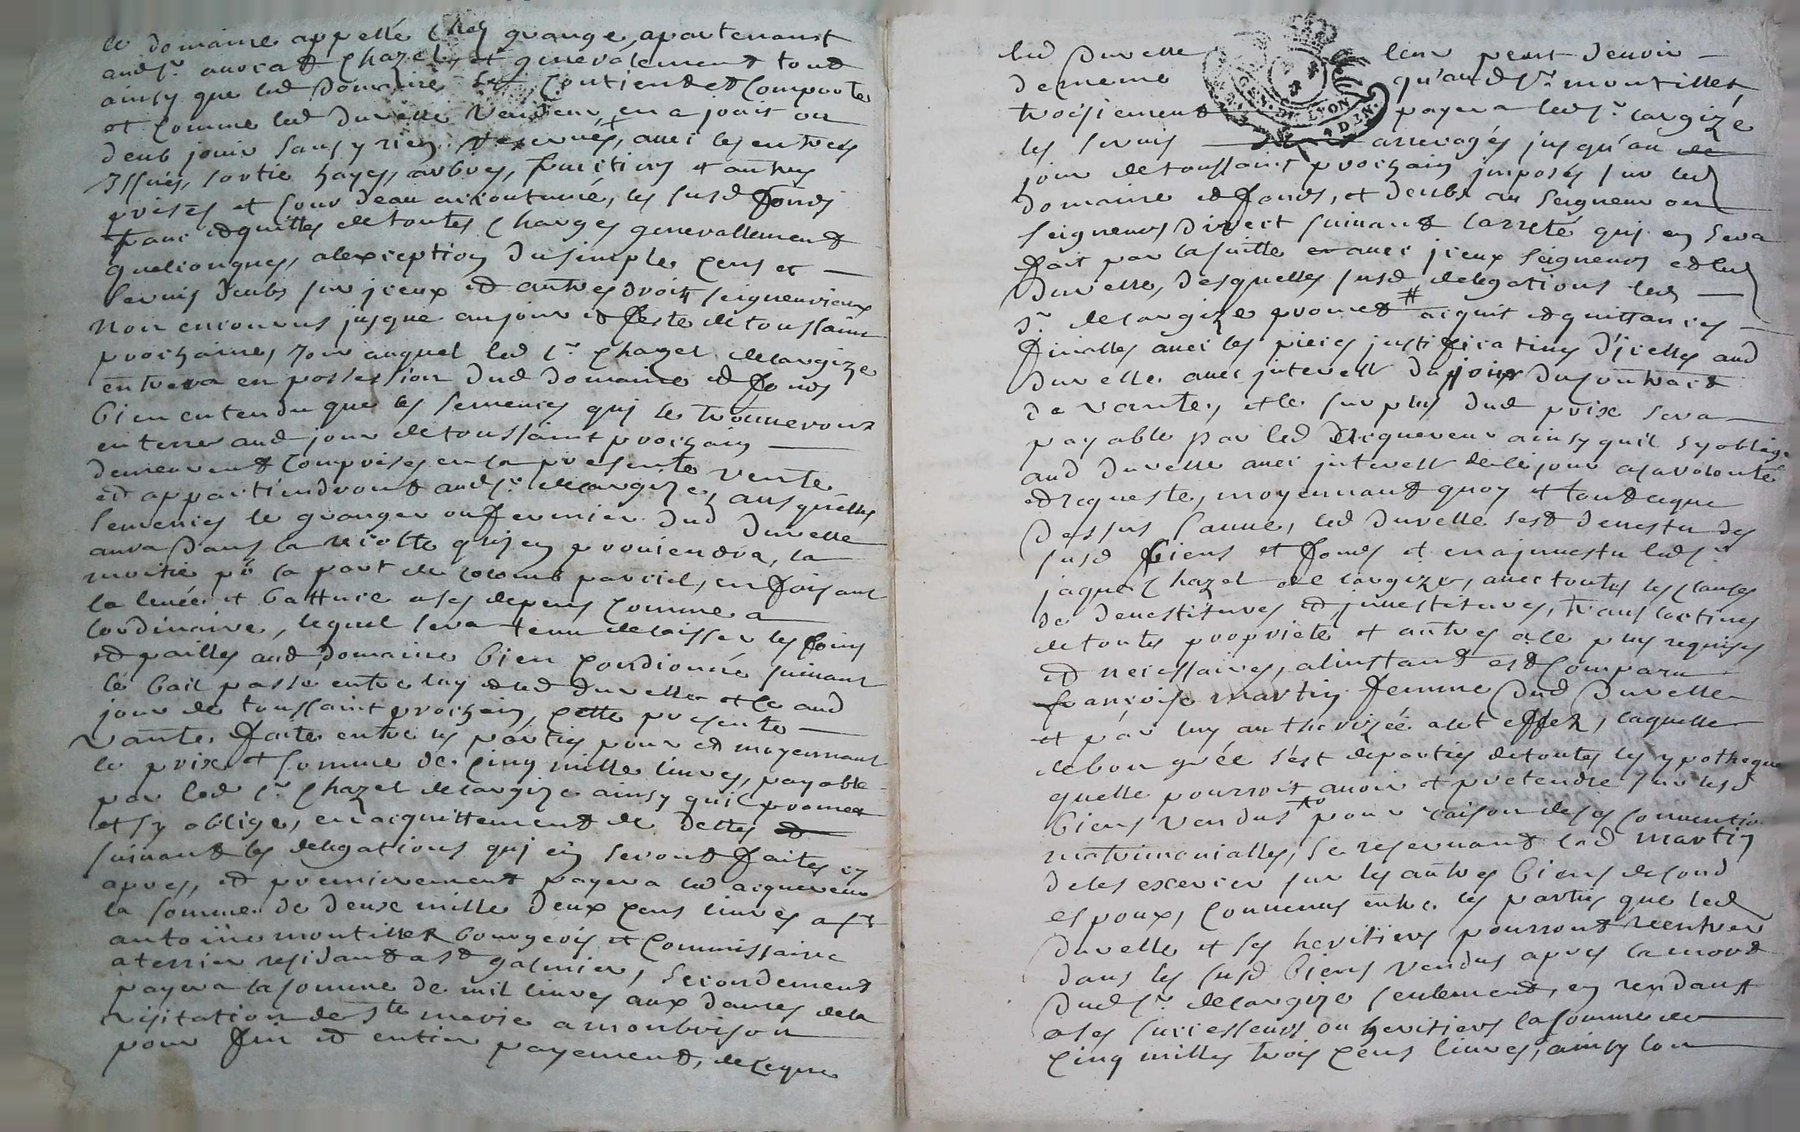 le domaine appellé Chez grange, apartenant
aud sr. avocat Chazel, et generalement tout
ainsy que led domaine se contient et Comporte
et Comme led duvelle vendeur en a jouit ou
deub jouir sans y rien reserver, avec les entrées
Issues, sortie hayes, arbres, fruitiers et autres
prises et cour deau accoutumé, les susd fonds
franc et quittes de toutes Charges generallement
quelconques, alexception du simple Cens et
servis deubs sur iceux et autres droits seigneuriaux
non encourus jusque au jour et feste de toussaint
prochaine, jour auquel led sr. Chazel delargize
entrera en possession dud domaine et fonds
bien entendu que les semences qui se trouveront
en terre aud jour de toussaint prochain
demeurent Comprises en la presente vente
et appartiendront aud sr. delargize, ausquelles
semences le granger ou fermier dud duvelle
aura dans la recolte qui en proviendra, la
moitié pr sa part de colonb parciel, en faisant
la levée et batture a ses depens Comme a
lordinaire, lequel sera tenu delaisser les foins
et pailles aud domaine bien Conditionné suivant
le bail passé entre luy et led duvelle et ce aud
jour de toussaint prochain, Cette presente
vante faite entre les parties pour et moyennant
le prix et somme de Cinq mille livres, payable
par led sr. Chazel delargize ainsy quil promet
et sy oblige, en acquittement de dettes
suivant les delegations qui en seront faites cy
apres, et premierement payera led acquereur
la somme de deux mille deux Cens livres a sr
antoine montillet bourgeois et Commissaire
a terrier residant a st galmier, secondement
payera la somme de mil livres aux dames de la
visitation de ste marie a montbrison
pour fin et entier payement, de ce que
led duvelle leur peut devoir
de meme qu'aud sr. montillet,
troisiement payera led sr. largize
les servis arreragés jusqu'au
jour de toussaint prochain imposés sur led
domaine et fonds, et deubs au seigneur ou
seigneurs direct suivant larreté qui en sera
fait par la suitte avec iceux seigneurs et led
duvelle, desquelles susd delegations led
sr. delargize promet # acquit et quittances
finalles avec les pieces justificatives d'icelles aud
duvelle avec interest du jour du contract
de vante, et le surplus dud prix sera
payable par led acquereur ainsy quil sy oblige
aud duvelle avec interest de ce jour a sa volonté
et requeste, moyennant quoy et tout ce que
dessus Cause, led duvelle sest devestu des
susd biens et fonds et en a jnvestu led sr
jaque Chazel de largize, avec toutes les clauses
de devestitures et jnvestitures, translactives
de toute proprieté et autres a ce plus requises
et necessaires, alinstant est Comparu
françoise martin femme dud duvelle
et par luy authorizée a cet effet, laquelle
de bon gré s'est departies de toutes les ypotheque
quelle pourroit avoir et pretendre sur lesd
biens vendus pour raison de ses Convention
matrimonialles, se reservant lad martin
de les exercer sur les autres biens de sond
espoux, Convenus entre les parties que led
duvelle et ses heritiers pourront reentrer
dans les susd biens vendus apres la mort
dud sr. delargize seulement, en rendant
a ses successeurs ou heritiers la somme de
Cinq milles trois Cens livres, ainsy lon